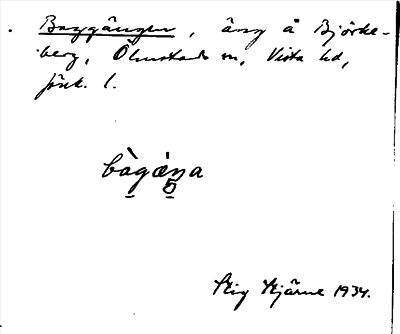 Baggängen, äng å Björke-
berg, Ölmstads sn, Vista hd,
Jönk. l.
bàgæ̀ŋa
Stig Stjärne 1934.